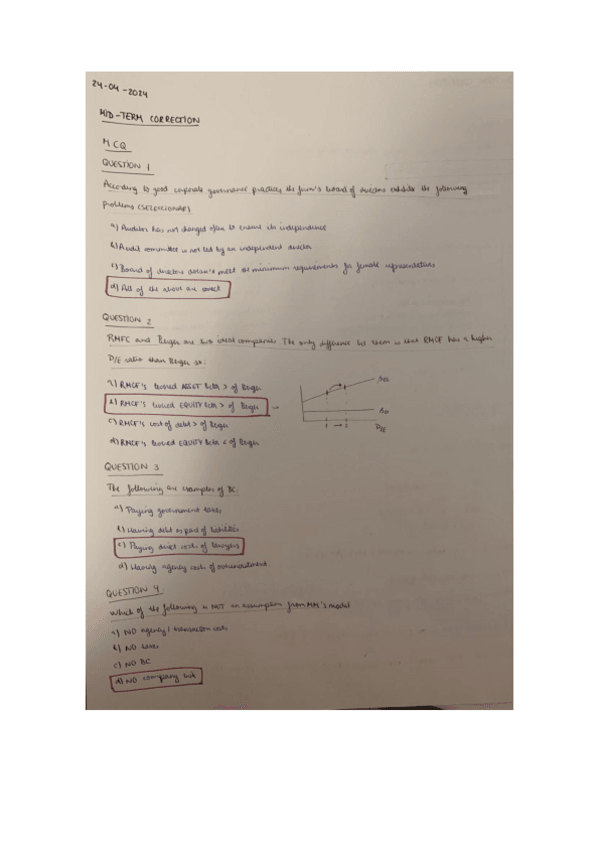 24-04-2024
MID-TERM CORRECTION
MCQ
QUESTION 1
According to good corporate governance practices the firm's board of directors exhibits the following
problems (SELECCIONAR)
a) Auditor has not changed often to ensure its independence
b) Audit committee is not led by an independent director
c) Board of directors doesn't meet the minimum requirements for female representation
d) All of the above are correct
QUESTION 2
RMFC and Berger are two ideal companies. The only difference bt them is that RMCF has a higher
D/E ratio than Berger so:
a) RMCF's levered ASSET Beta > of Berger
b) RMCF's levered EQUITY Beta > of Berger
c) RMCF's cost of debt > of Berger
d) RMCF's levered EQUITY Beta < of Berger
D/E
QUESTION 3
The following are examples of BC
a) Paying government taxes
b) Having debt as part of liabilities
c) Paying direct costs of lawyers
d) Having agency costs of
QUESTION 4
Which of the following is NOT an assumption from MM's model
a) NO agency / transaction costs
b) NO taxes
c) NO BC
d) NO company risk